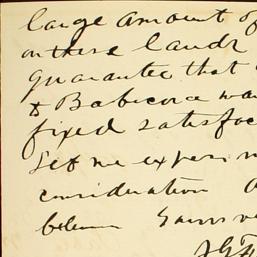 large amount of
on these lands
guarantee that
& Babcock wa
fixed satisfac
Let me
consideration
believe yours ve